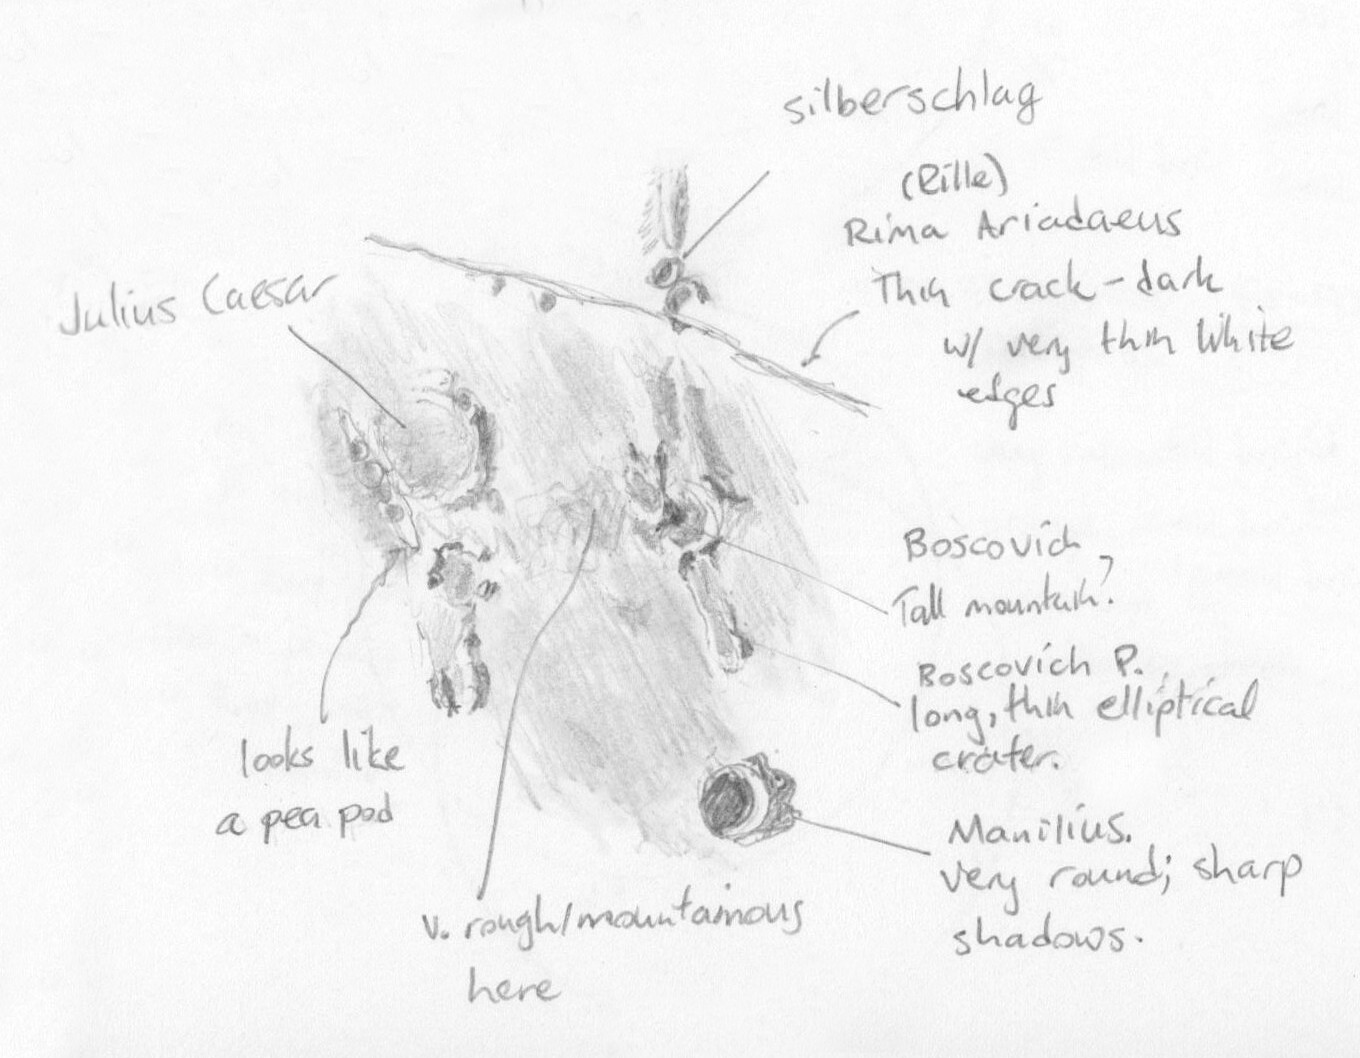 silberschlag
(Rille)
Rima Ariadaeus
Thin crack - dark
w/ very thin White
edges
Julius Caesar
Boscovich
Tall mountain?
Boscovich P.
long, thin elliptical
crater.
looks like
a pea pod
Manilius.
very round; sharp
shadows.
v. rough/mountainous
here